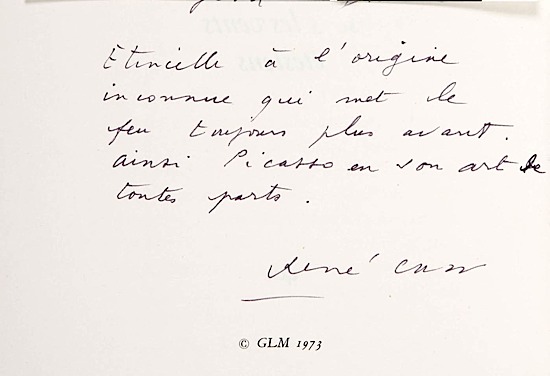 Etincelle à l'origine
inconnue qui met le
feu toujours plus avant.
ainsi Picasso en son art de
toutes parts.
René Char
© GLM 1973